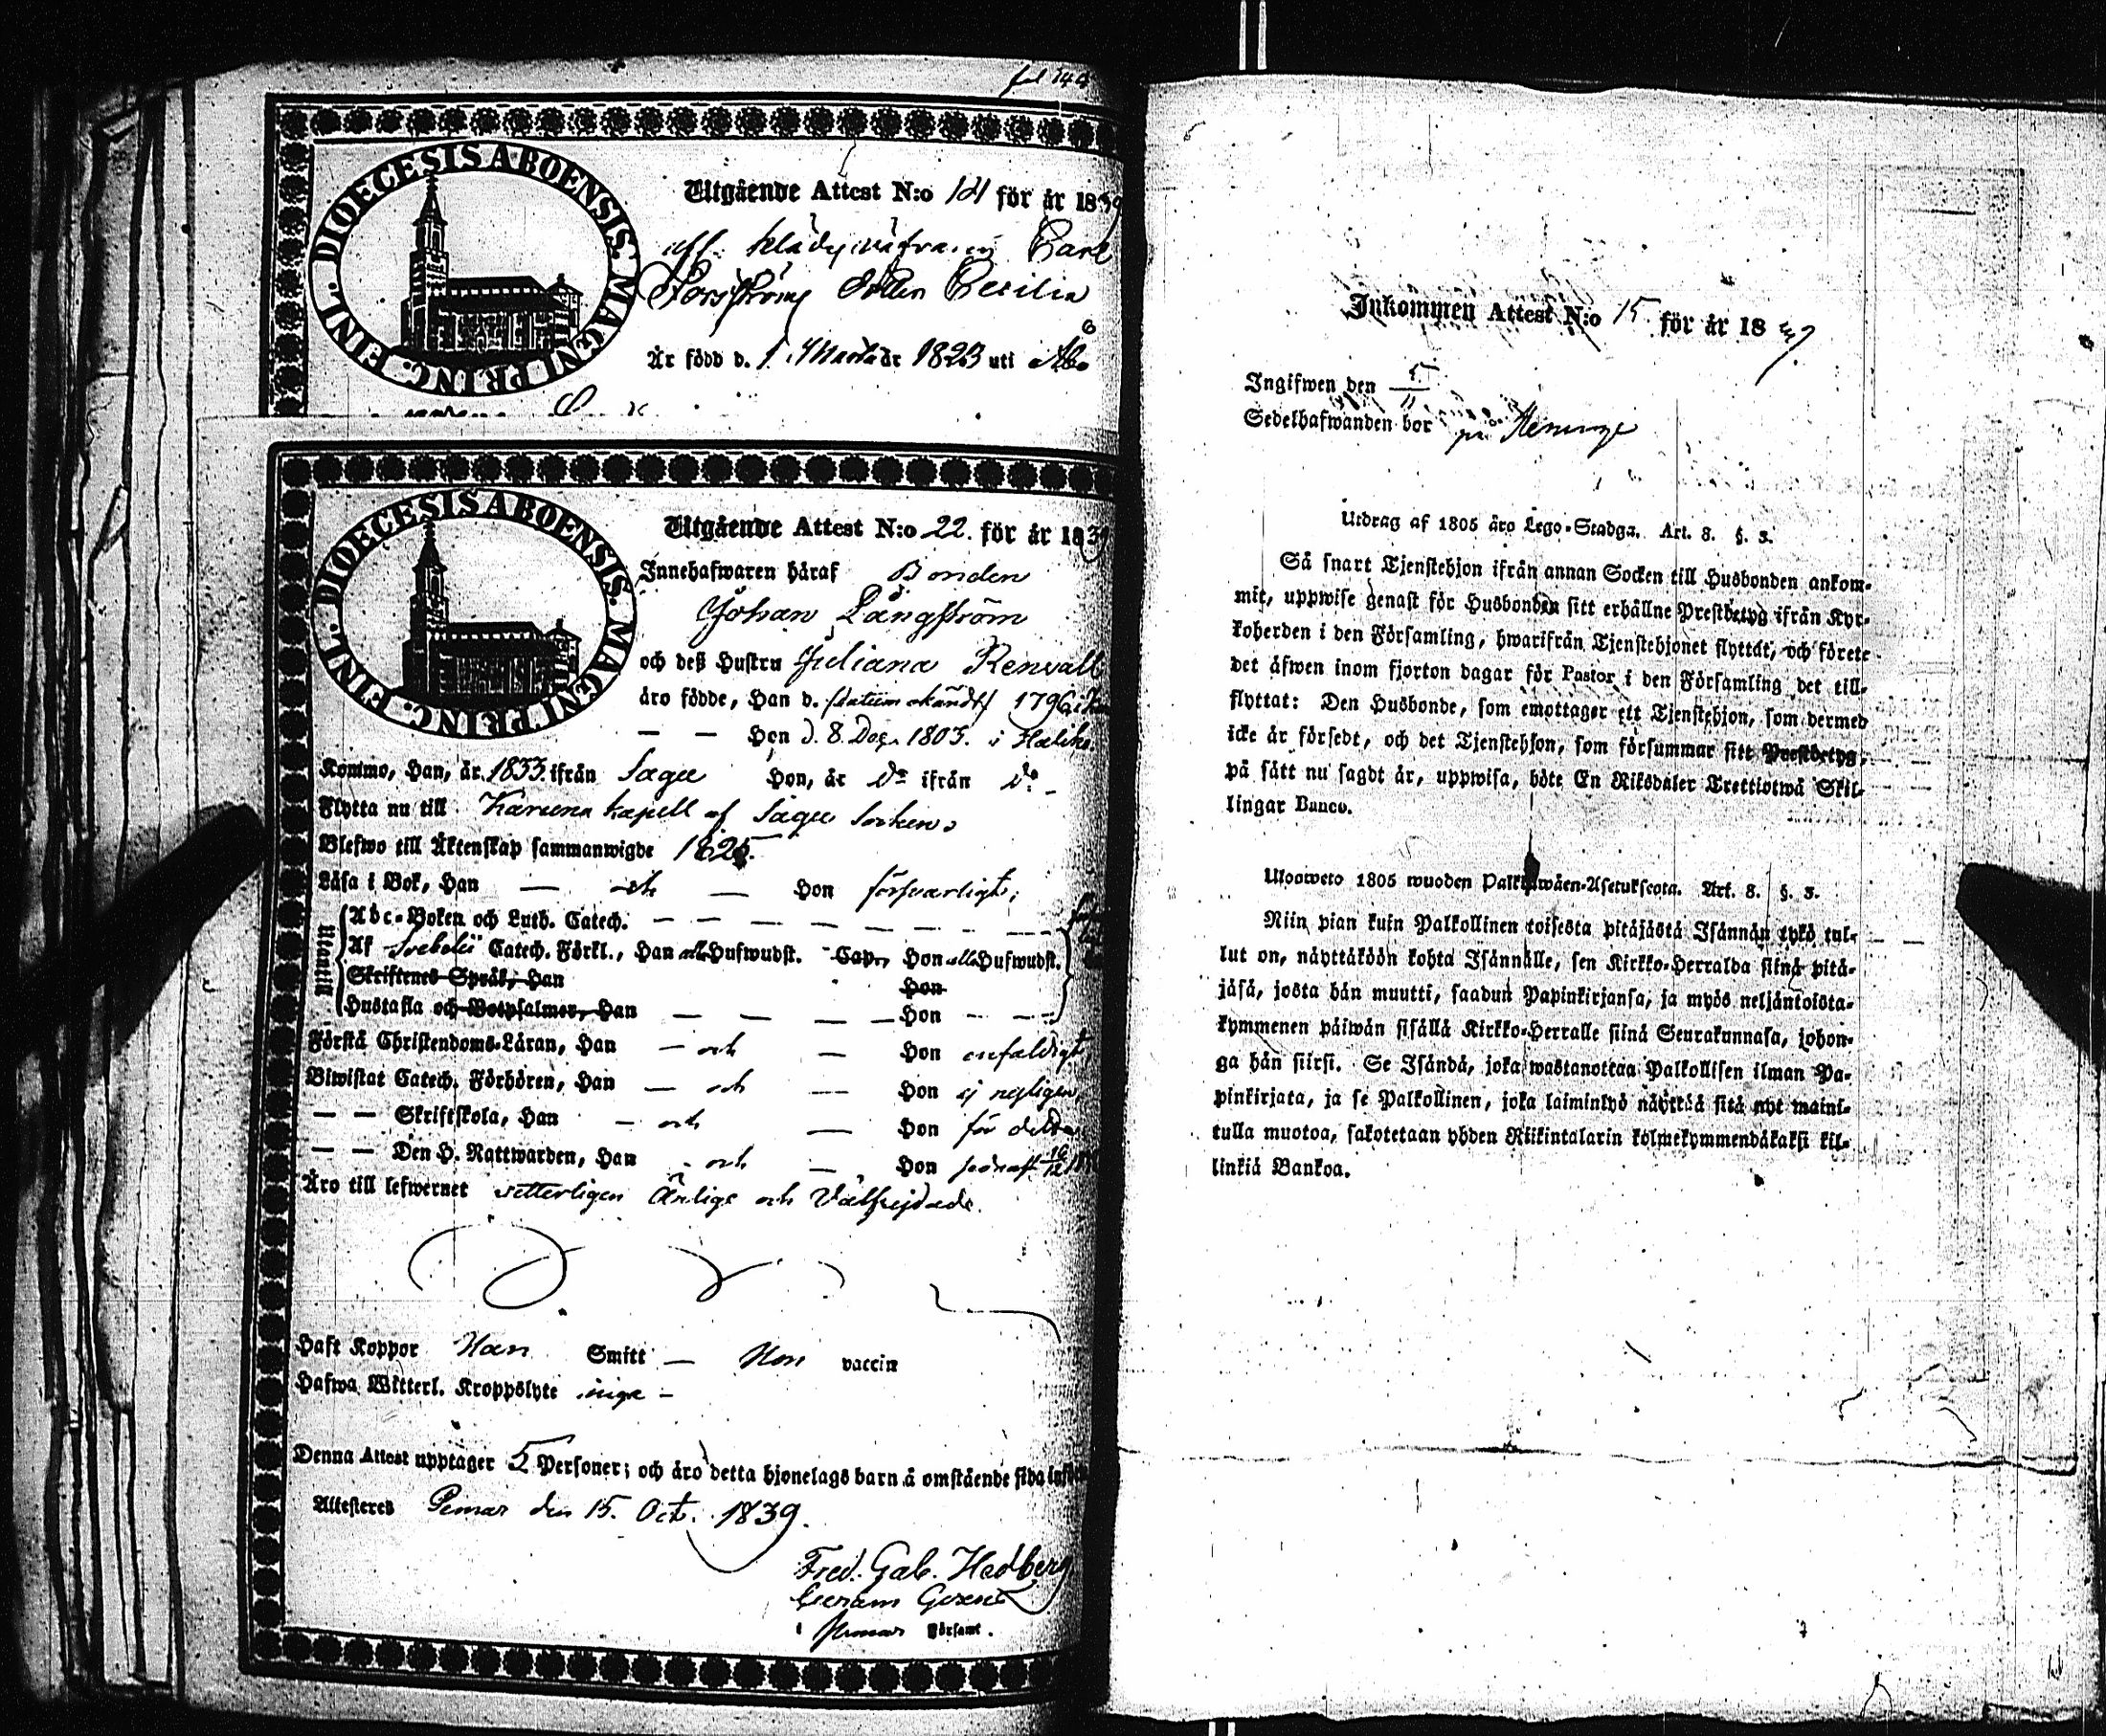 fol 144
DIOECESIS ABOENSIS. MAGNI PRINC. FINL.
Utgående Attest N:o 101 för år 1839
Carl
Dotter Cecilia
Är född d. 1 Martii år 1823 uti Åbo
DIOECESIS ABOENSIS. MAGNI PRINC. FINL.
Utgående Attest N:o 22. för år 1839
Innehafwaren häraf Bonden
Johan Långström
och deß Hustru Juliana Renvall
äro födde, Han d. (datum okändt) 1796 i
— — Hon d. 8. Dec. 1803. i Haliko.
Kommo, Han, år 1833 ifrån Sagu Hon, år do ifrån do
Flytta nu till Karuna kapell af Sagu Socken
Blefwo till Äktenskap sammanwigde 1825.
Läsa i Bok, Han — och — Hon försvarligt;
Utantil
Abc-Boken och Luth. Catech. — — — — — — —
Af Svebelii Catech. Förkl., Han alla Hufwudst. Cap., Hon alla Hufwudst.
Skriftenes Språk, Han Hon
Hustafla och Botpsalmer, Han — — — — Hon — —
Förstå Christendoms-Läran, Han — och — Hon enfaldigt
Biwistat Catech. Förhören, Han — och — Hon ej
— — Skriftskola, Han — och — Hon för detta
— — Den H. Nattwarden, Han — och — Hon sednast 16/12
Äro till lefwernet vetterligen Ärlige och Välfrejdade.
Haft Koppor Han Smitt — Hon vaccin
Hafwa Witterl. Kroppslyte inga —
Denna Attest upptager 5 Personer; och äro detta hjonelags barn å omstående sida
Attesteras Pemar den 15. Oct. 1839.
Fred. Gab. Hedberg
i Pemar Församl.
Inkommen Attest N:o 15 för år 1839
Ingifwen den 5/11
Sedelhafwanden bor på
Utdrag af 1805 åro Lego-Stadga. Art. 8. §. 3.
Så snart Tjenstehjon ifrån annan Socken till Husbonden ankom-
mit, uppwise genast för Husbonden sitt erhållne Prestbetyg ifrån Kyr-
koherden i den Församling, hwarifrån Tjenstehjonet flyttat, och förete
det äfwen inom fjorton dagar för Pastor i den Församling det till-
flyttat: Den Husbonde, som emottager ett Tjenstehjon, som dermed
icke är försedt, och det Tjenstehjon, som försummar sitt Prestbetyg,
på sätt nu sagdt är, uppwisa, böte En Riksdaler Trettiotwå Skil-
lingar Banco.
Ulosweto 1805 wuoden Palkkawäen-Asetuksesta. Art. 8. §. 3.
Niin pian kuin Palkollinen toisesta pitäjästä Isännän tykö tul-
lut on, näyttäköön kohta Isännälle, sen Kirkko-Herralda siinä pitä-
jäsä, josta hän muutti, saadun Papinkirjansa, ja myös neljäntoista-
kymmenen päiwän sisällä Kirkko-Herralle siinä Seurakunnasa, johon-
ga hän siirsi. Se Isändä, joka wastanottaa Palkollisen ilman Pa-
pinkirjata, ja se Palkollinen, joka laiminlyö näyttää sitä nyt maini-
tulla muotoa, sakotetaan yhden Riikintalarin kolmekymmendäkaksi kil-
linkiä Bankoa.